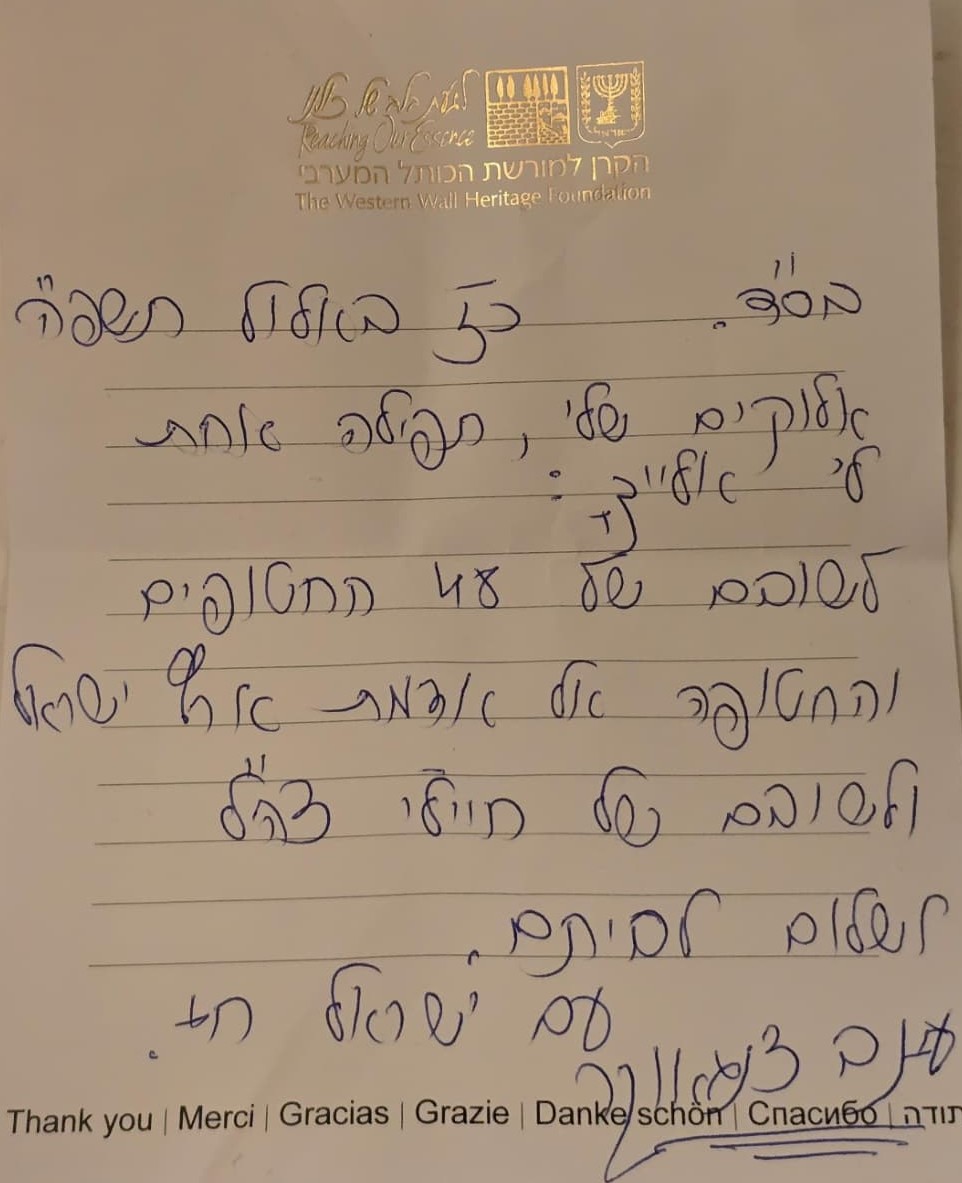 לגעת בלב של כולנו
Reaching Our Essence
ישראל
הקרן למורשת הכותל המערבי
The Western Wall Heritage Foundation
בס"ד. כז באלול תשפ"ה
אלוקים שלי, תפילה אחת
לי אלייך:
לשובם של 47 החטופים
והחטופה אל אדמת ארץ ישראל
ולשובם של חיילי צה"ל
לשלום לביתם.
עם ישראל חי.
עינב צנגאוקר
Thank you | Merci | Gracias | Grazie | Danke schön | Спасибо | תודה